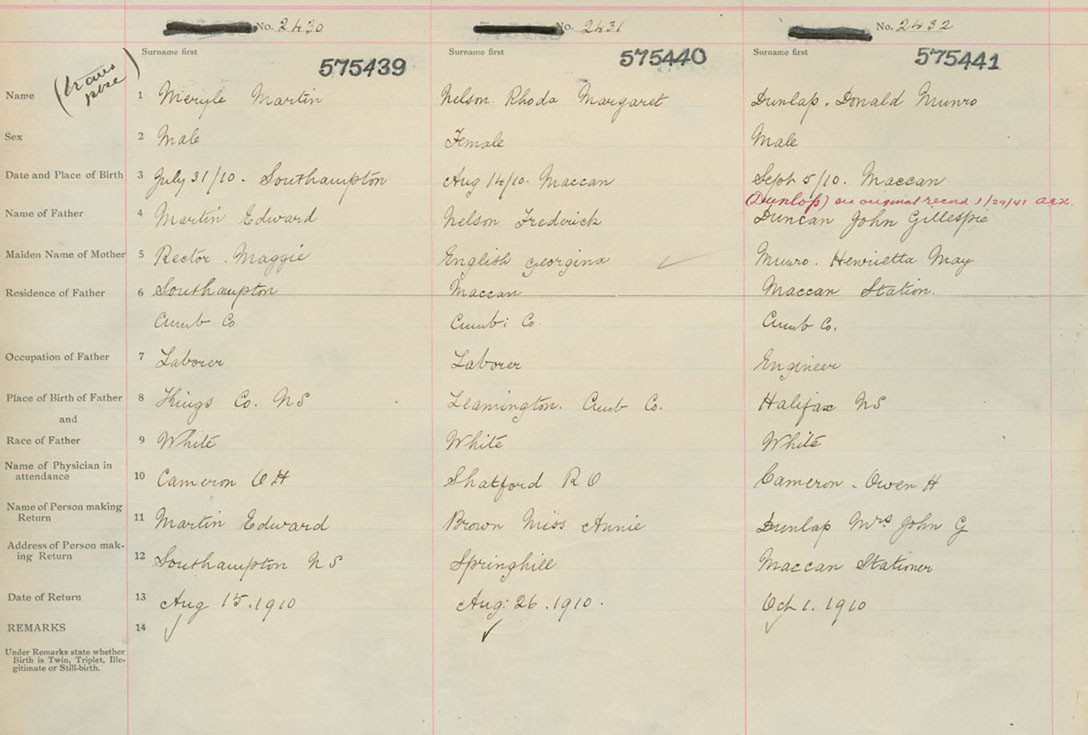 No. 2430 No. 2431 No. 2432
Surname first Surname first Surname first
575439 575440 575441
(trans
pose)
Name 1 Martin Nelson. Rhoda Margaret Dunlap. Donald Munro
Sex 2 Male Female Male
Date and Place of Birth 3 July 31/10. Southampton Aug 14/10. Maccan Sept 5/10. Maccan
(Dunlop) see original record 1/29/41
Name of Father 4 Martin Edward Nelson Frederick Duncan John Gillespie
Maiden Name of Mother 5 Rector. Maggie English Georgina Munro. Henrietta May
Residence of Father 6 Southampton Maccan Maccan Station.
Cumb Co Cumb: Co. Cumb Co.
Occupation of Father 7 Laborer Laborer Engineer
Place of Birth of Father 8 Kings Co. NS Leamington. Cumb Co. Halifax NS
and
Race of Father 9 White White White
Name of Physician in
attendance 10 Cameron O H Shatford R O Cameron - Owen H
Name of Person making
Return 11 Martin Edward Brown Miss Annie Dunlap Mrs John G
Address of Person mak-
ing Return 12 Southampton NS Springhill Maccan Stationer
Date of Return 13 Aug 15.1910 Aug: 26.1910. Oct 1. 1910
REMARKS 14
Under Remarks state whether
Birth is Twin, Triplet, Ille-
gitimate or Still-birth.